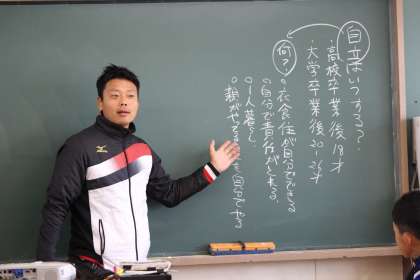 自立はいつする？
・高校卒業後 18才
・大学卒業後 20〜26才
何？
○衣食住が自分でできる
○自分で責任がとれる。
○1人暮らし
○親がやってることを自分でやる